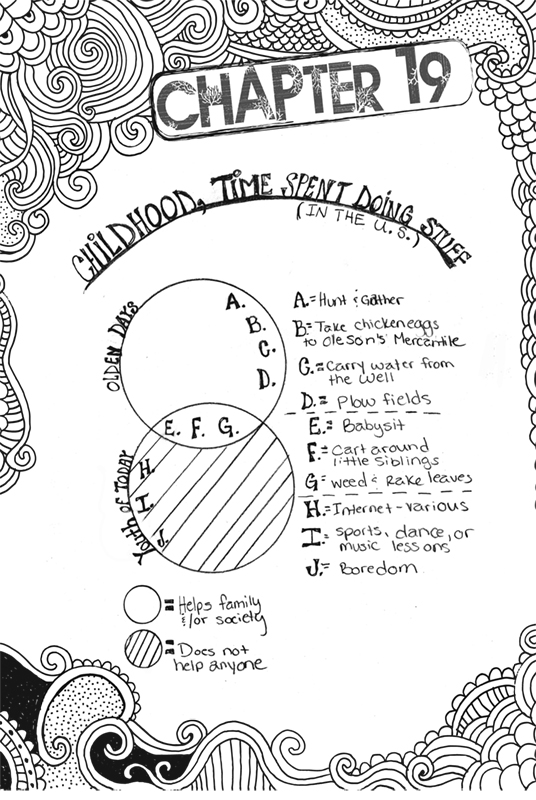 CHAPTER 19
CHILDHOOD, TIME SPENT DOING STUFF
(IN THE U.S.)
OLDEN DAYS
A.
B.
C.
D.
E. F. G.
Youth of Today
H.
I.
J.
A.= Hunt & Gather
B.= Take chicken eggs
to Oleson's Mercantile
C.= Carry water from
the well
D.= Plow fields
E.= Babysit
F.= Cart around
little siblings
G= weed & Rake leaves
H.= Internet-various
I.= sports, dance, or
music lessons
J.= Boredom
= Helps family
&/or society
= Does not
help anyone